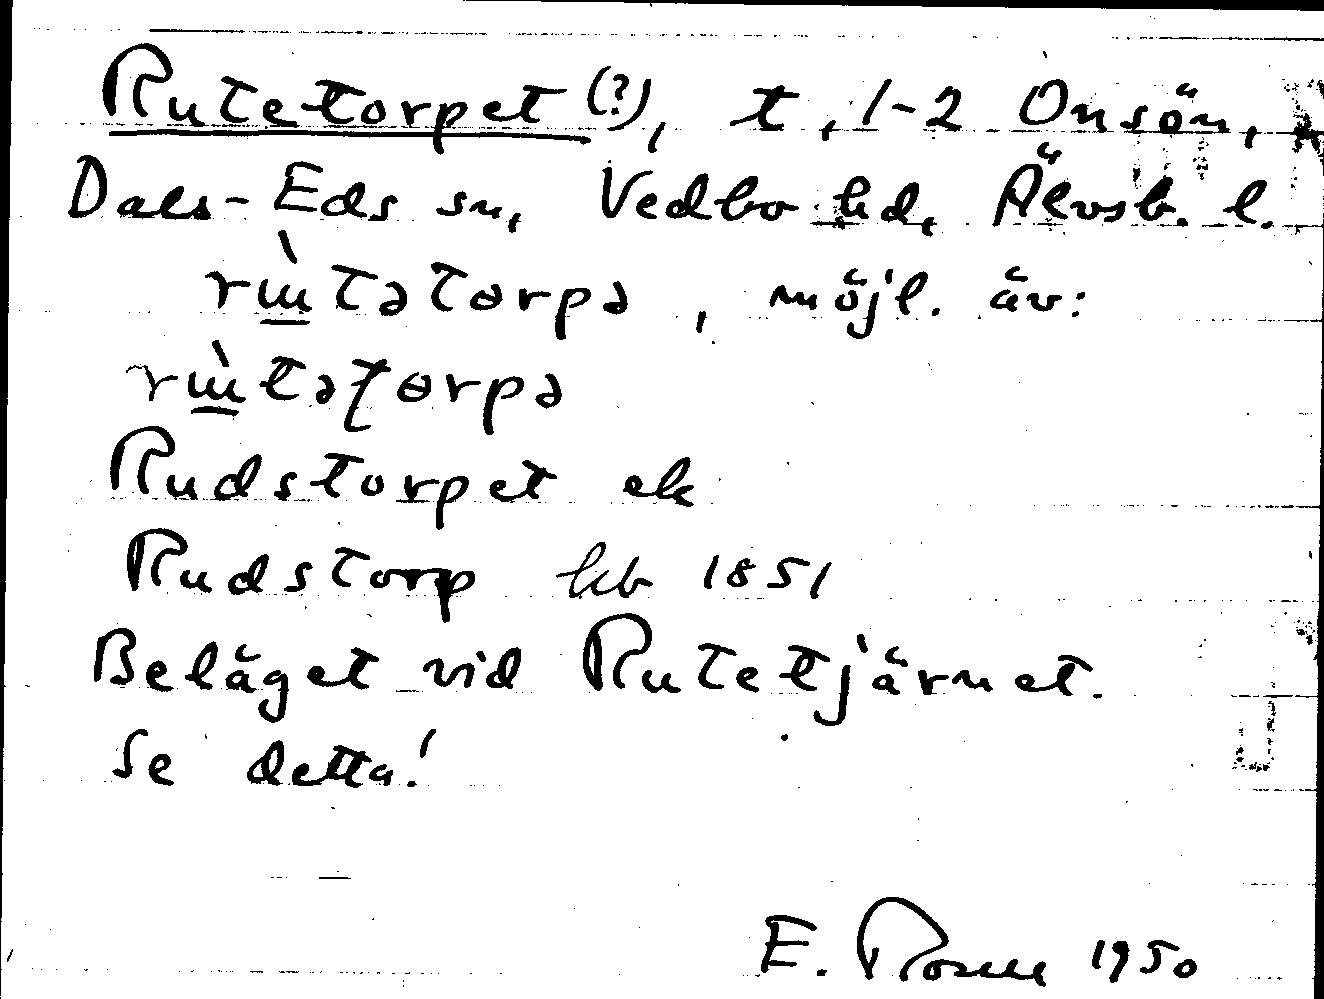 Rutetorpet (?), t, 1-2 Onsön,
Dals-Eds sn, Vedbo hd, Älvsb. l.
rɯ̈̀tətɵrpə, möjl. äv:
rɯ̈̀tətɵrpə
Rudstorpet ek
Rudstorp kb 1851
Beläget vid Rutetjärnet.
Se detta!
E. Rosell 1950